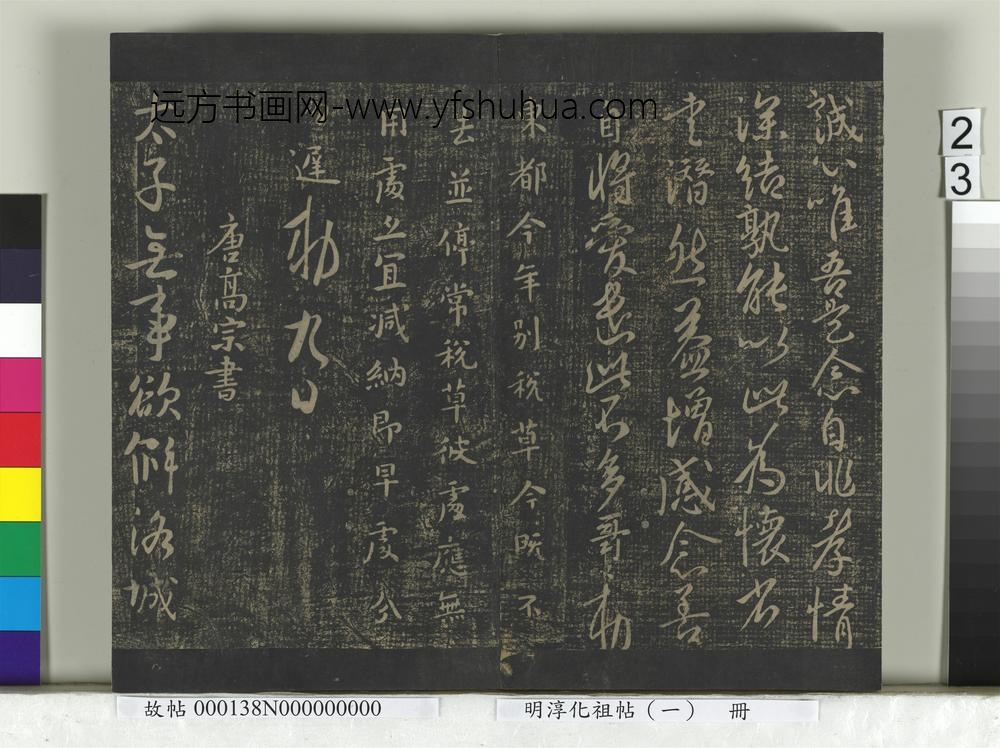 誠心唯吾是念自非孝情
深結孰能以此為懷省
書潛然益增感念善
自將愛遣此不多哥勅
東都今年別稅草今既不
去並停常稅草彼處應無
用處亦宜減納即早處分
遲勅九日
唐高宗書
太子無事欲歸洛城
远方书画网-www.yfshuhua.com
2
3
故帖 000138N000000000
明淳化祖帖（一） 冊